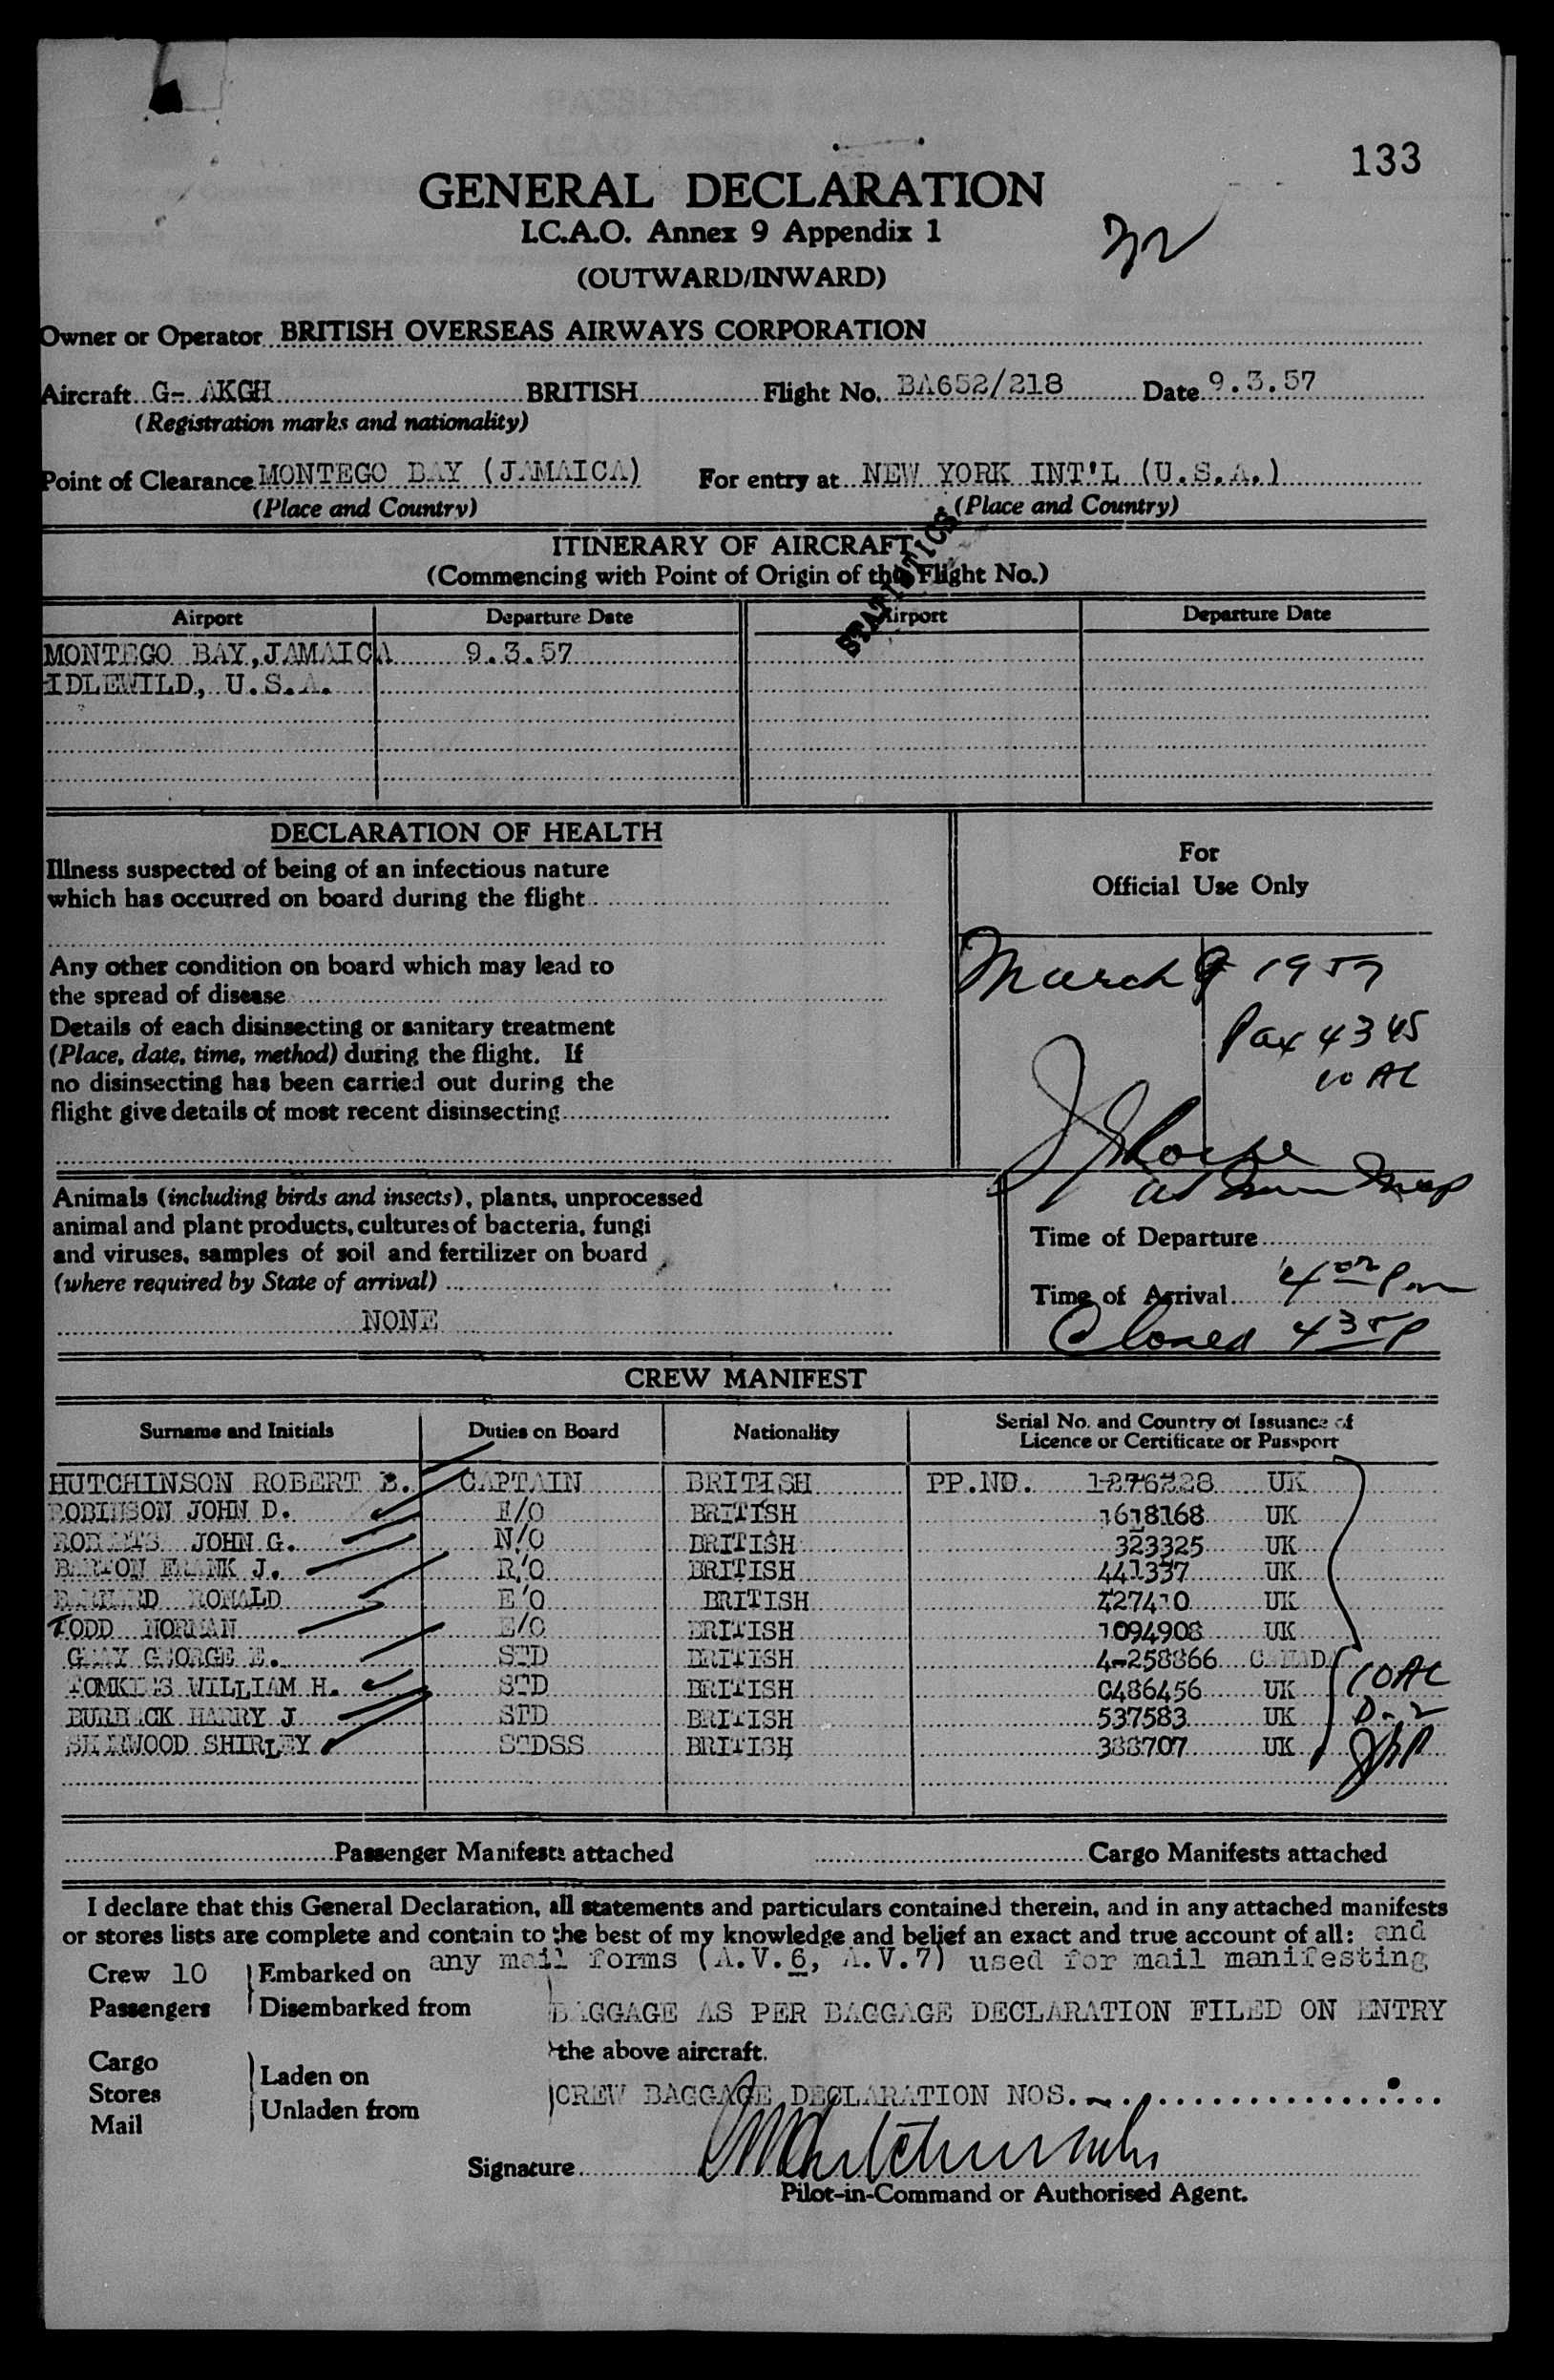 133
GENERAL DECLARATION
I.C.A.O. Annex 9 Appendix 1
(OUTWARD/INWARD)
Owner or Operator BRITISH OVERSEAS AIRWAYS CORPORATION
Aircraft G- AKGH BRITISH Flight No. BA652/218 Date 9.3.57
(Registration marks and nationality)
Point of Clearance MONTEGO BAY (JAMAICA) For entry at NEW YORK INT'L (U.S.A.)
(Place and Country) (Place and Country)
STATISTICS
ITINERARY OF AIRCRAFT
(Commencing with Point of Origin of this Flight No.)
Airport Departure Date Airport Departure Date
MONTEGO BAY, JAMAICA 9.3.57
IDLEWILD, U.S.A.
DECLARATION OF HEALTH
Illness suspected of being of an infectious nature
which has occurred on board during the flight
Any other condition on board which may lead to
the spread of disease
Details of each disinsecting or sanitary treatment
(Place, date, time, method) during the flight. If
no disinsecting has been carried out during the
flight give details of most recent disinsecting
For
Official Use Only
March 9 1957
Pax 43 45
10 AC
Animals (including birds and insects), plants, unprocessed
animal and plant products, cultures of bacteria, fungi
and viruses, samples of soil and fertilizer on board
(where required by State of arrival)
NONE
Time of Departure
Time of Arrival 4 02 Pm
Closed 4 35 P
CREW MANIFEST
Surname and Initials Duties on Board Nationality Serial No. and Country of Issuance of
Licence or Certificate or Passport
HUTCHINSON ROBERT B. CAPTAIN BRITISH PP.NO. 1276228 UK
ROBINSON JOHN D. F/O BRITISH 1618168 UK
ROBERTS JOHN G. N/O BRITISH 323325 UK
BARTON FRANK J. R/O BRITISH 441337 UK
RONALD E/O BRITISH 427410 UK
TODD NORMAN E/O BRITISH 1094908 UK
GRAY GEORGE E. STD BRITISH 4-258866 CANADA
TOMKINS WILLIAM H. STD BRITISH C486456 UK 10 AC
HARRY J STD BRITISH 537583 UK D-2
SHIRLEY STDSS BRITISH 388707 UK
Passenger Manifests attached Cargo Manifests attached
I declare that this General Declaration, all statements and particulars contained therein, and in any attached manifests
or stores lists are complete and contain to the best of my knowledge and belief an exact and true account of all: and
any mail forms (A.V.6, A.V.7) used for mail manifesting
Crew 10 Embarked on
Passengers Disembarked from
BAGGAGE AS PER BAGGAGE DECLARATION FILED ON ENTRY
the above aircraft.
Cargo
Stores
Mail
Laden on
Unladen from
CREW BAGGAGE DECLARATION NOS.
Signature
Pilot-in-Command or Authorised Agent.